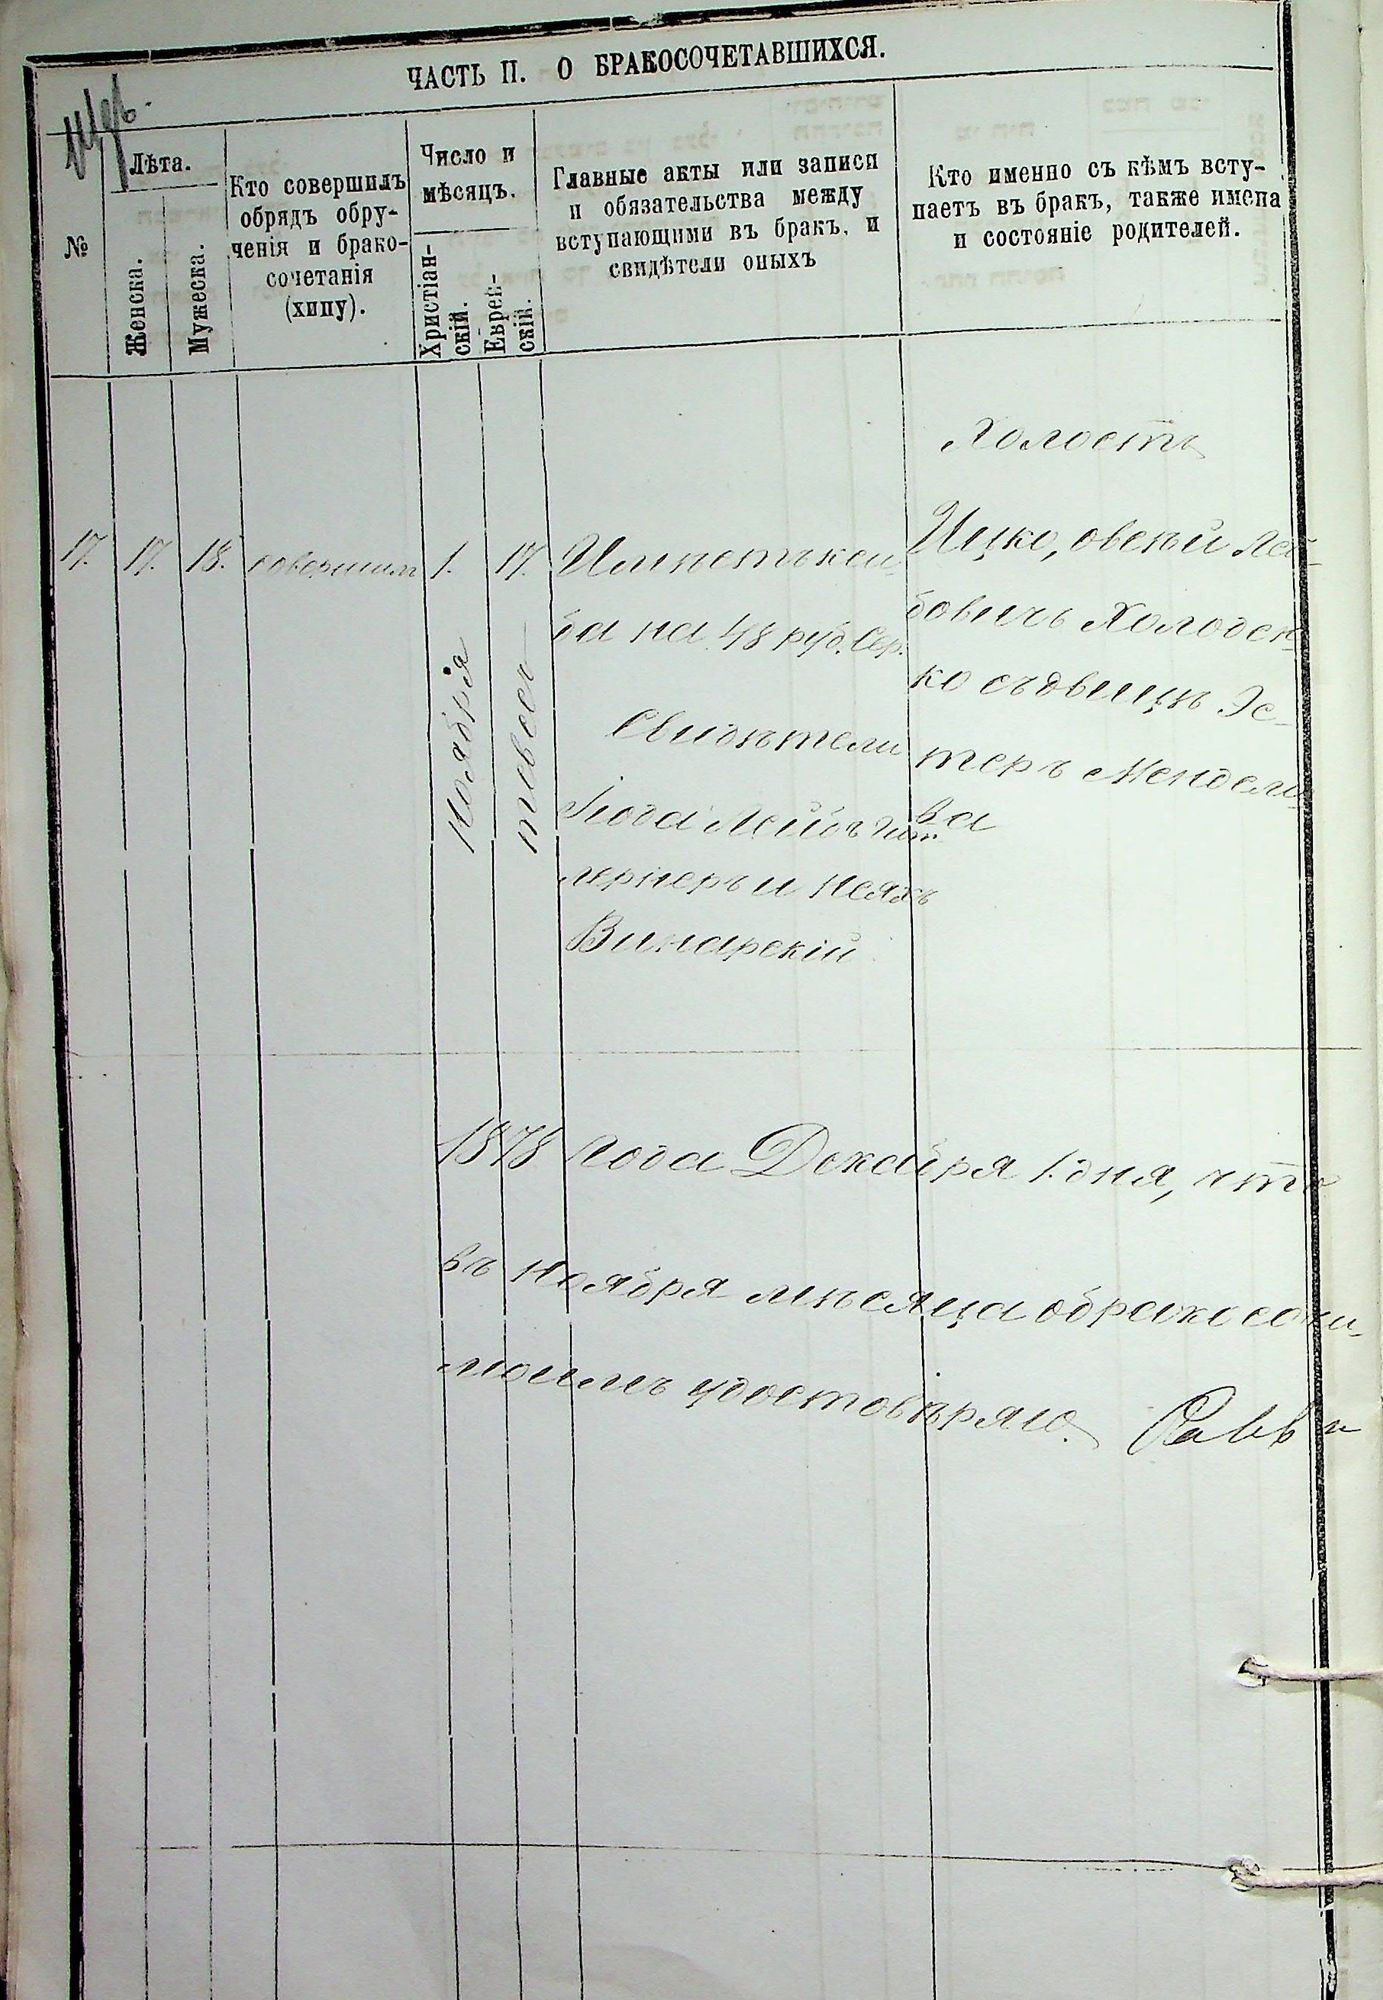 ЧАСТЬ II. О БРАКОСОЧЕТАВШИХСЯ.
№
Лѣта.
Женска.
Мужеска.
Кто совершилъ
обрядъ обру-
ченія и брако-
сочетанія
(хипу).
Число и
мѣсяцъ.
Христіан-
скій.
Еврей-
скій.
Главные акты или записи
и обязательства между
вступающими въ бракъ, и
свидѣтели оныхъ
Кто именно съ кѣмъ всту-
паетъ въ бракъ, также имена
и состояніе родителей.
17.
17.
18.
1.
Ноября
17.
ба на 48 руб. Сер.
Свидѣтели
и
Винарскій
Холостъ
Ицко, Лей-
бовичъ Холоден-
ко съ дѣвицѣ Эс-
теръ Мендели-
ва
1878 года Декабря 1. дня, что
въ Ноября мѣсяца
удостовѣряю. Равви